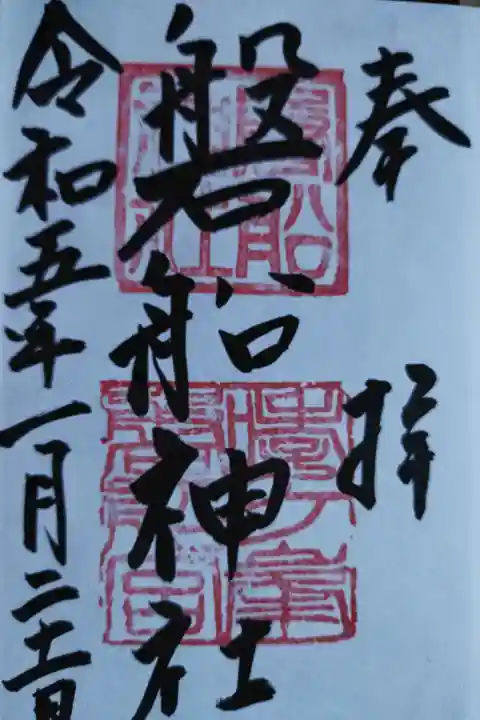 奉拝
磐船神社
令和五年一月二十一日